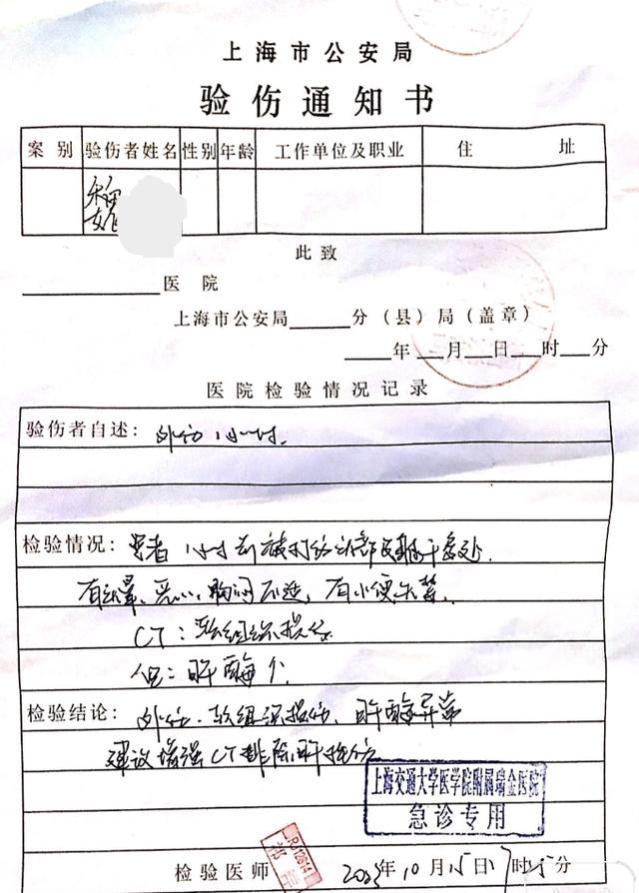 上海市公安局
验伤通知书
案别 验伤者姓名 性别 年龄 工作单位及职业 住 址
此致
医院
上海市公安局 分（县）局（盖章）
年 月 日 时 分
医院检验情况记录
验伤者自述：外伤1小时.
检验情况：患者1小时前被打伤头部及躯干多处.
有头晕、恶心，胸闷不适，有小便失禁.
CT：软组织损伤.
肝酶↑.
检验结论：外伤.软组织损伤，肝酶异常
建议增强CT排除肝损伤
上海交通大学医学院附属瑞金医院
急诊专用
RJ12614
检验医师 2023年10月15日 时 分